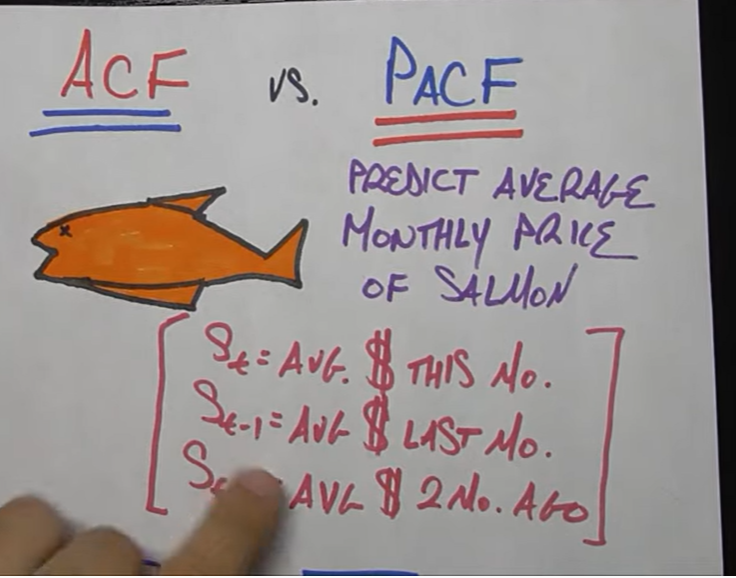 ACF vs. PACF
PREDICT AVERAGE
MONTHLY PRICE
OF SALMON
St = AVG. $ THIS MO.
St-1 = AVG $ LAST MO.
= AVG $ 2 MO. AGO